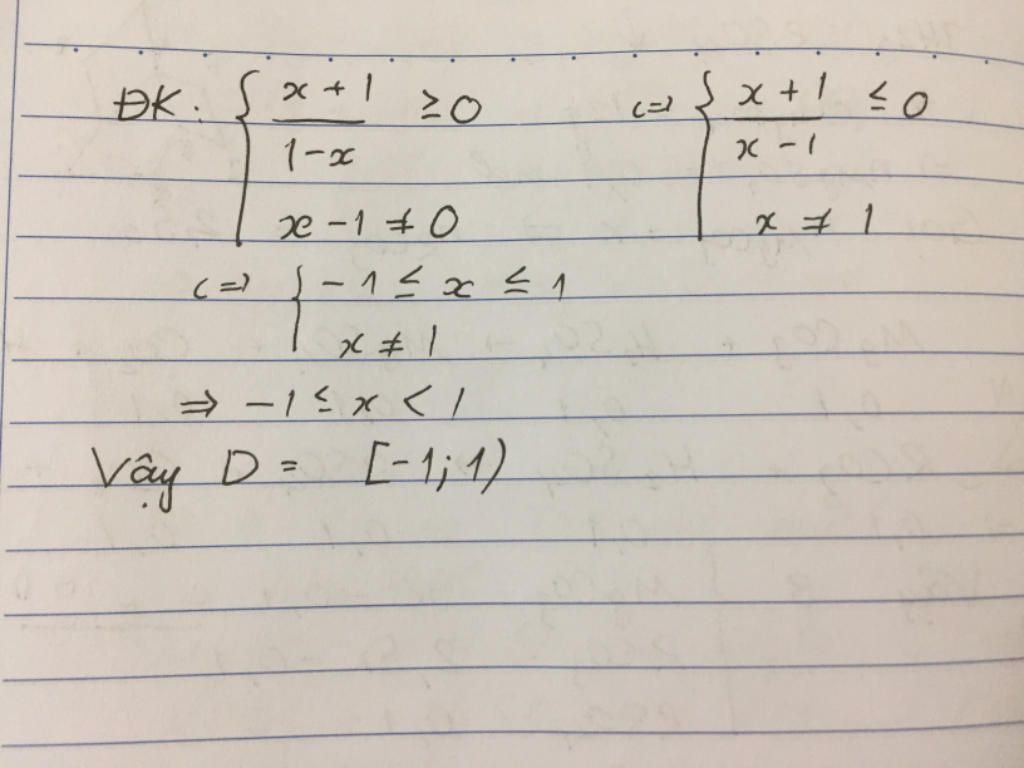 ĐK: { (x + 1)/(1 - x) ≥ 0 <=> { (x + 1)/(x - 1) ≤ 0
x - 1 ≠ 0 x ≠ 1
<=> { -1 ≤ x ≤ 1
x ≠ 1
=> -1 ≤ x < 1
Vậy D = [-1; 1)